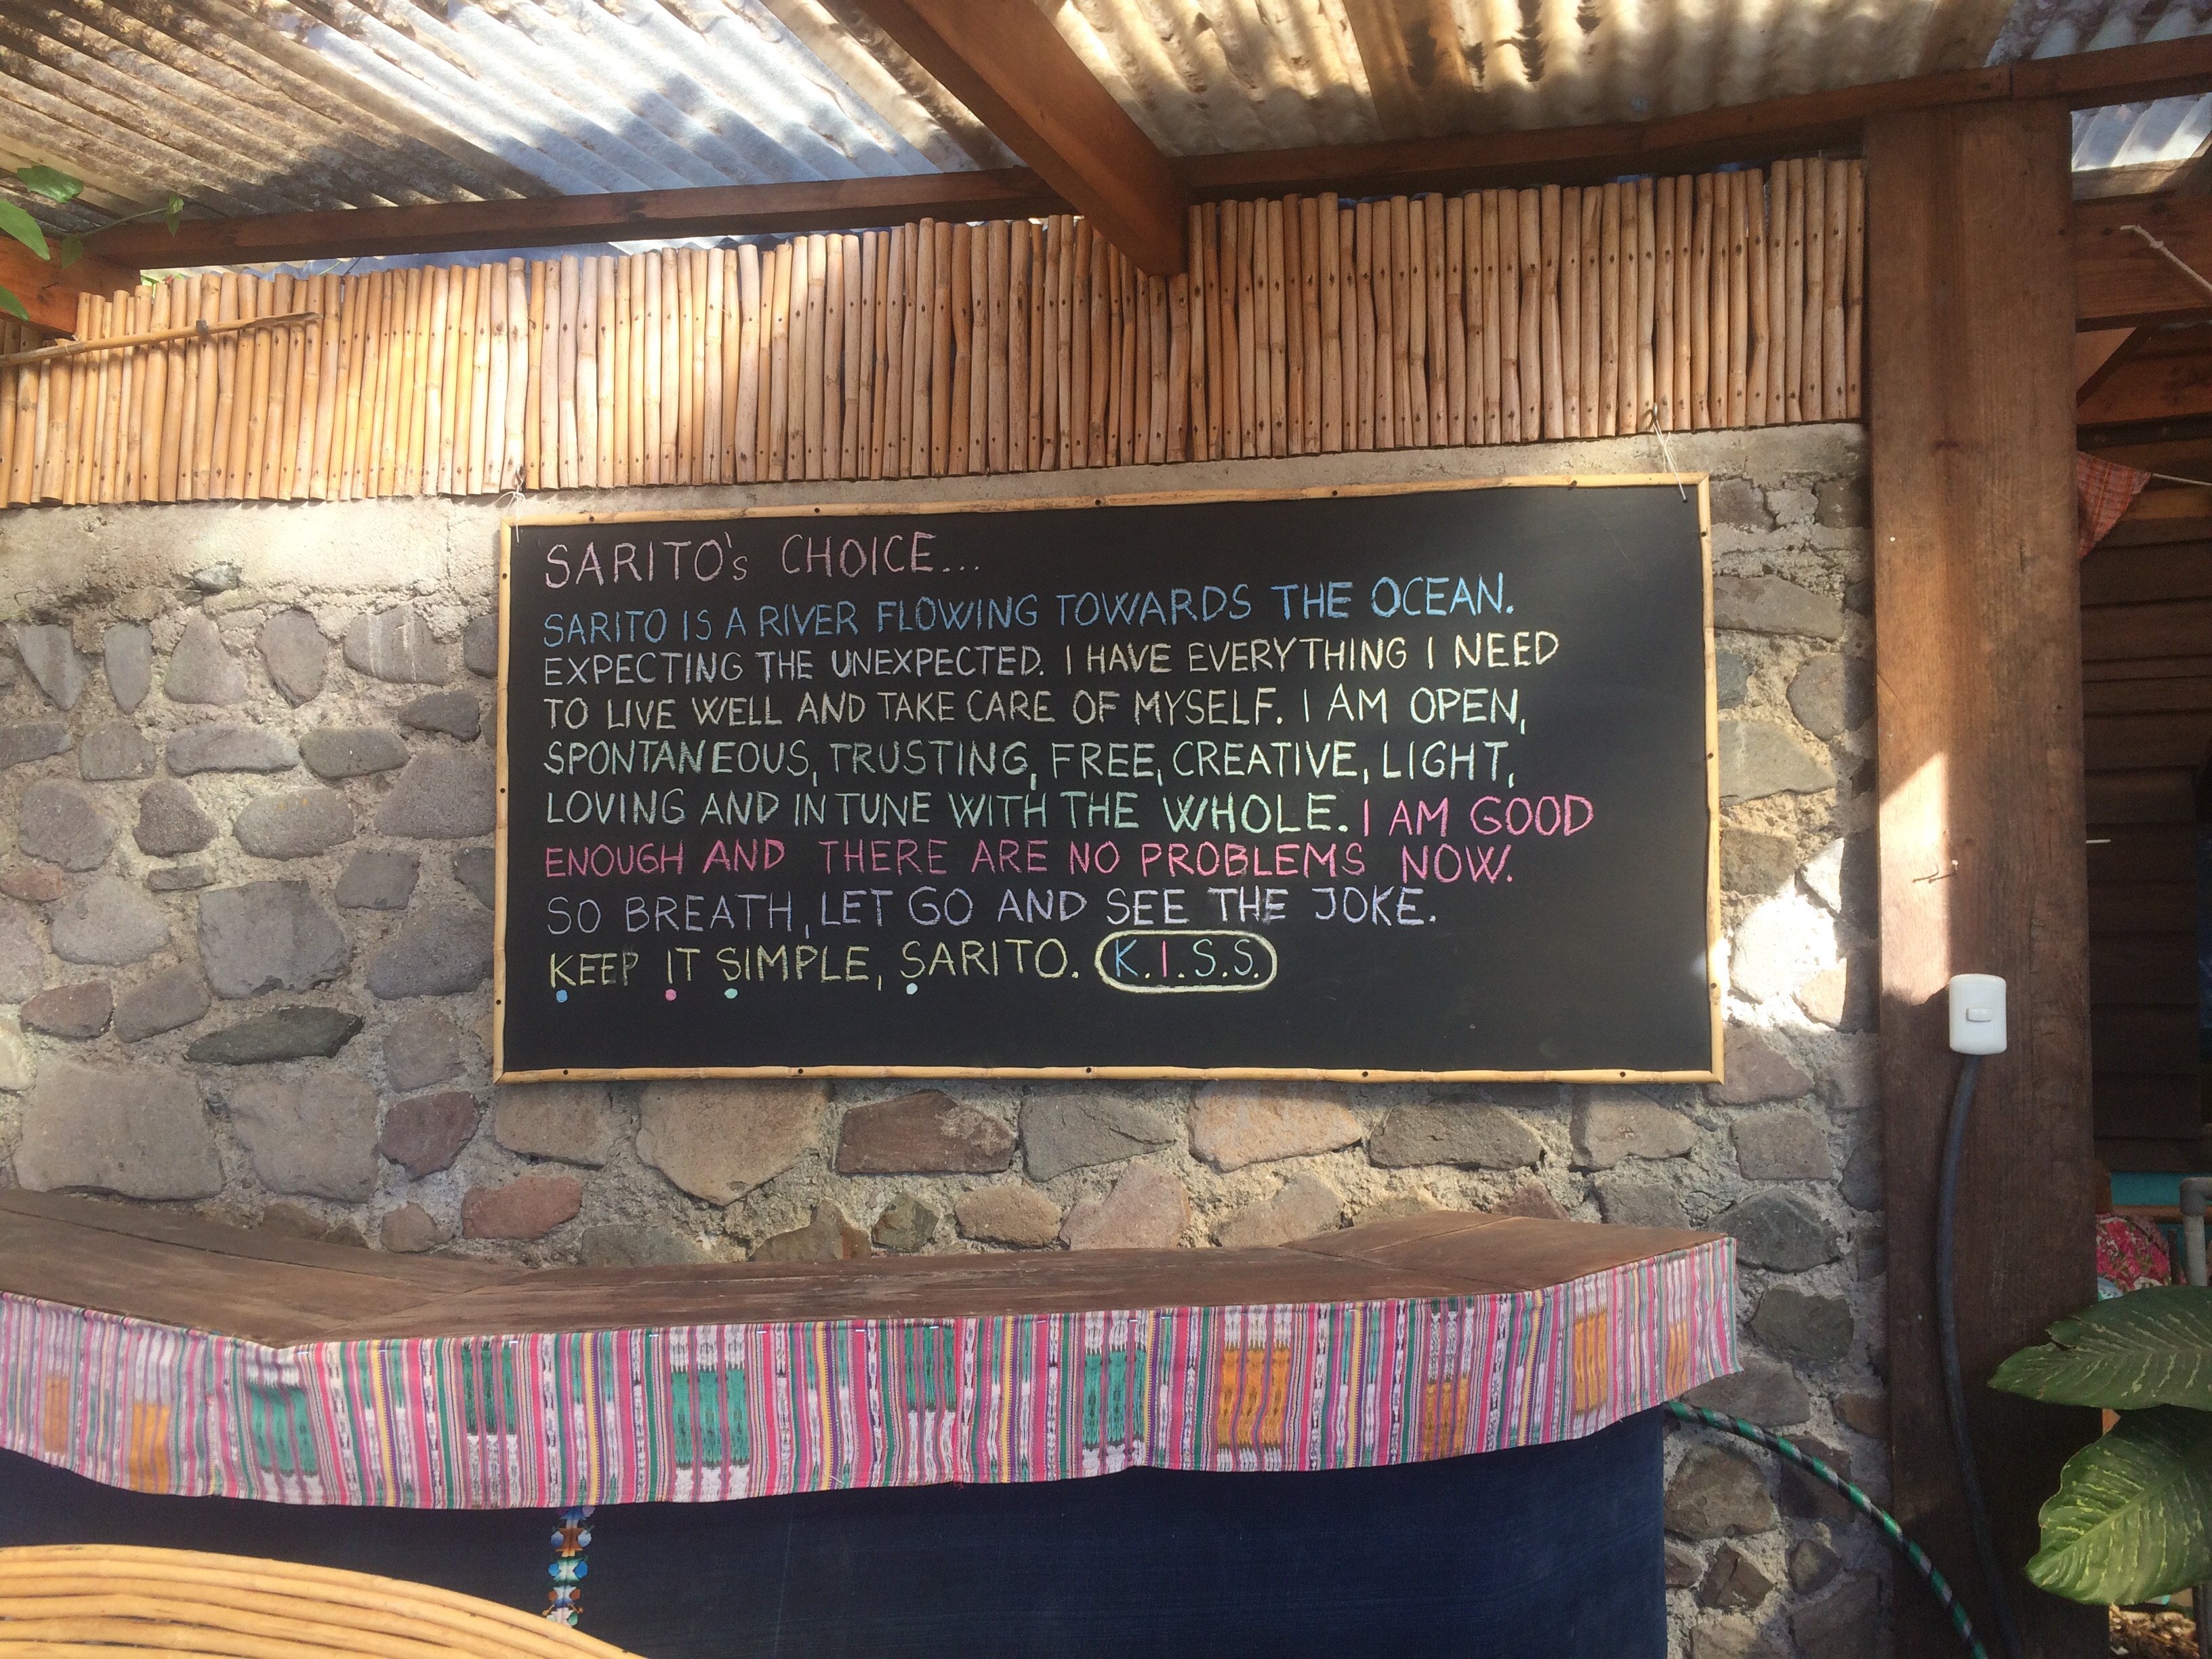 SARITO's CHOICE...
SARITO IS A RIVER FLOWING TOWARDS THE OCEAN.
EXPECTING THE UNEXPECTED. I HAVE EVERYTHING I NEED
TO LIVE WELL AND TAKE CARE OF MYSELF. I AM OPEN,
SPONTANEOUS, TRUSTING, FREE, CREATIVE, LIGHT,
LOVING AND IN TUNE WITH THE WHOLE. I AM GOOD
ENOUGH AND THERE ARE NO PROBLEMS NOW.
SO BREATH, LET GO AND SEE THE JOKE.
KEEP IT SIMPLE, SARITO. K.I.S.S.